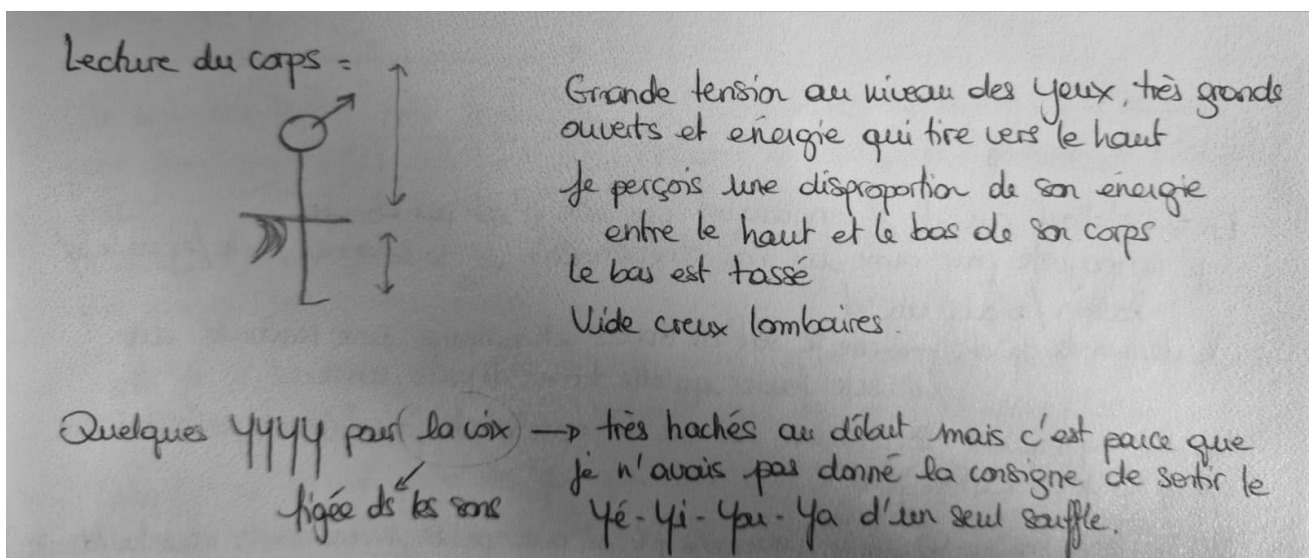 Lecture du corps =
Grande tension au niveau des yeux, très grands
ouverts et énergie qui tire vers le haut
Je perçois une disproportion de son énergie
entre le haut et le bas de son corps
Le bas est tassé
Vide creux lombaires.
Quelques YYYY pour la voix → très hachés au début mais c'est parce que
je n'avais pas donné la consigne de sentir le
figée ds les sons
Yé - Yi - You - Ya d'un seul souffle.